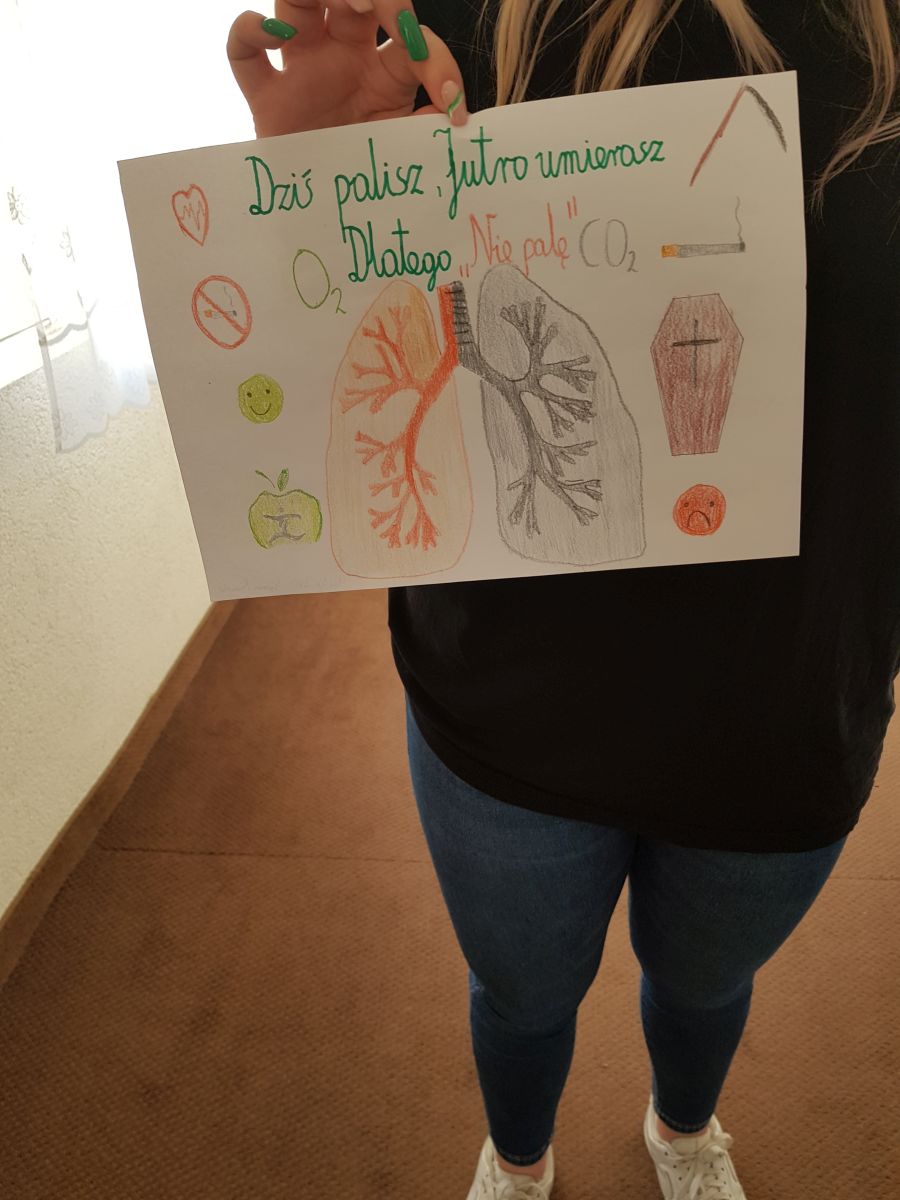 Dziś palisz, Jutro umierasz
Dlatego „Nie palę”
O₂
CO₂